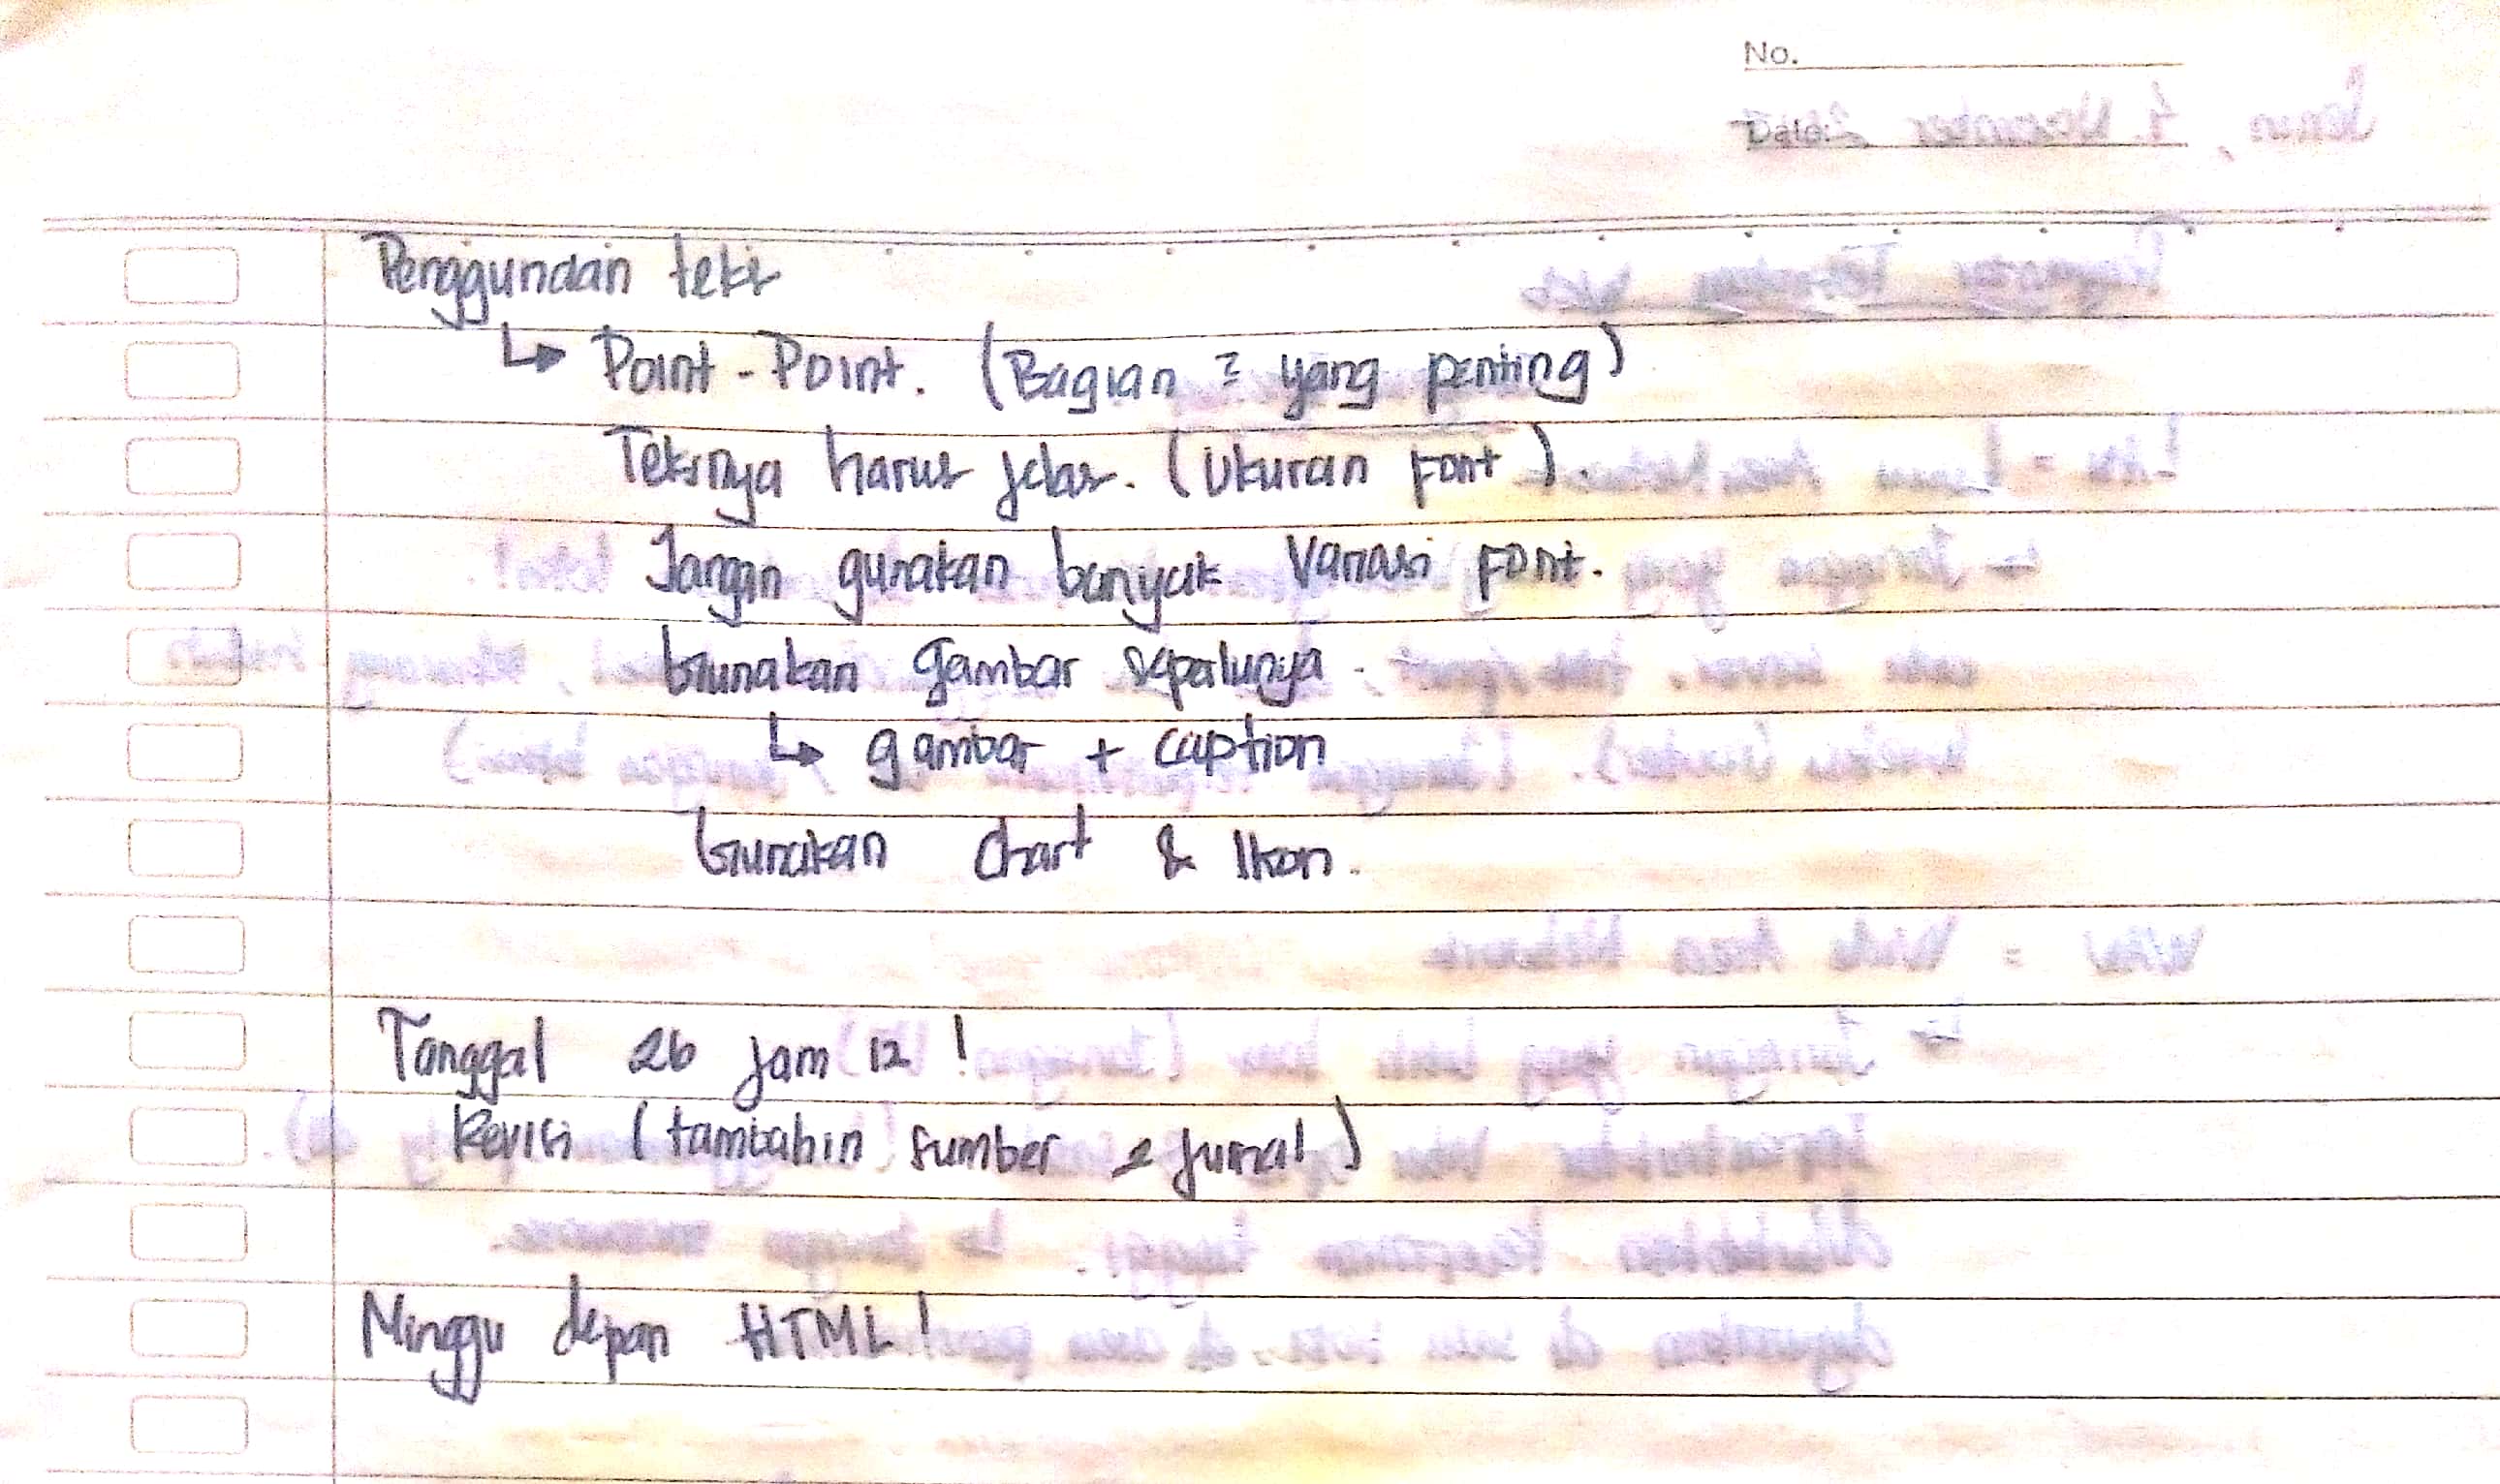 No.
Date:
Penggunaan teks
↳ Point - Point. (Bagian 2 yang penting)
Teksnya harus jelas. (Ukuran Font).
Jangan gunakan banyak variasi font.
Gunakan gambar seperlunya.
↳ gambar + caption
Gunakan Chart & Ikon.
Tanggal 26 jam 12 !
Revisi (tambahin sumber 2 jurnal)
Minggu depan HTML!